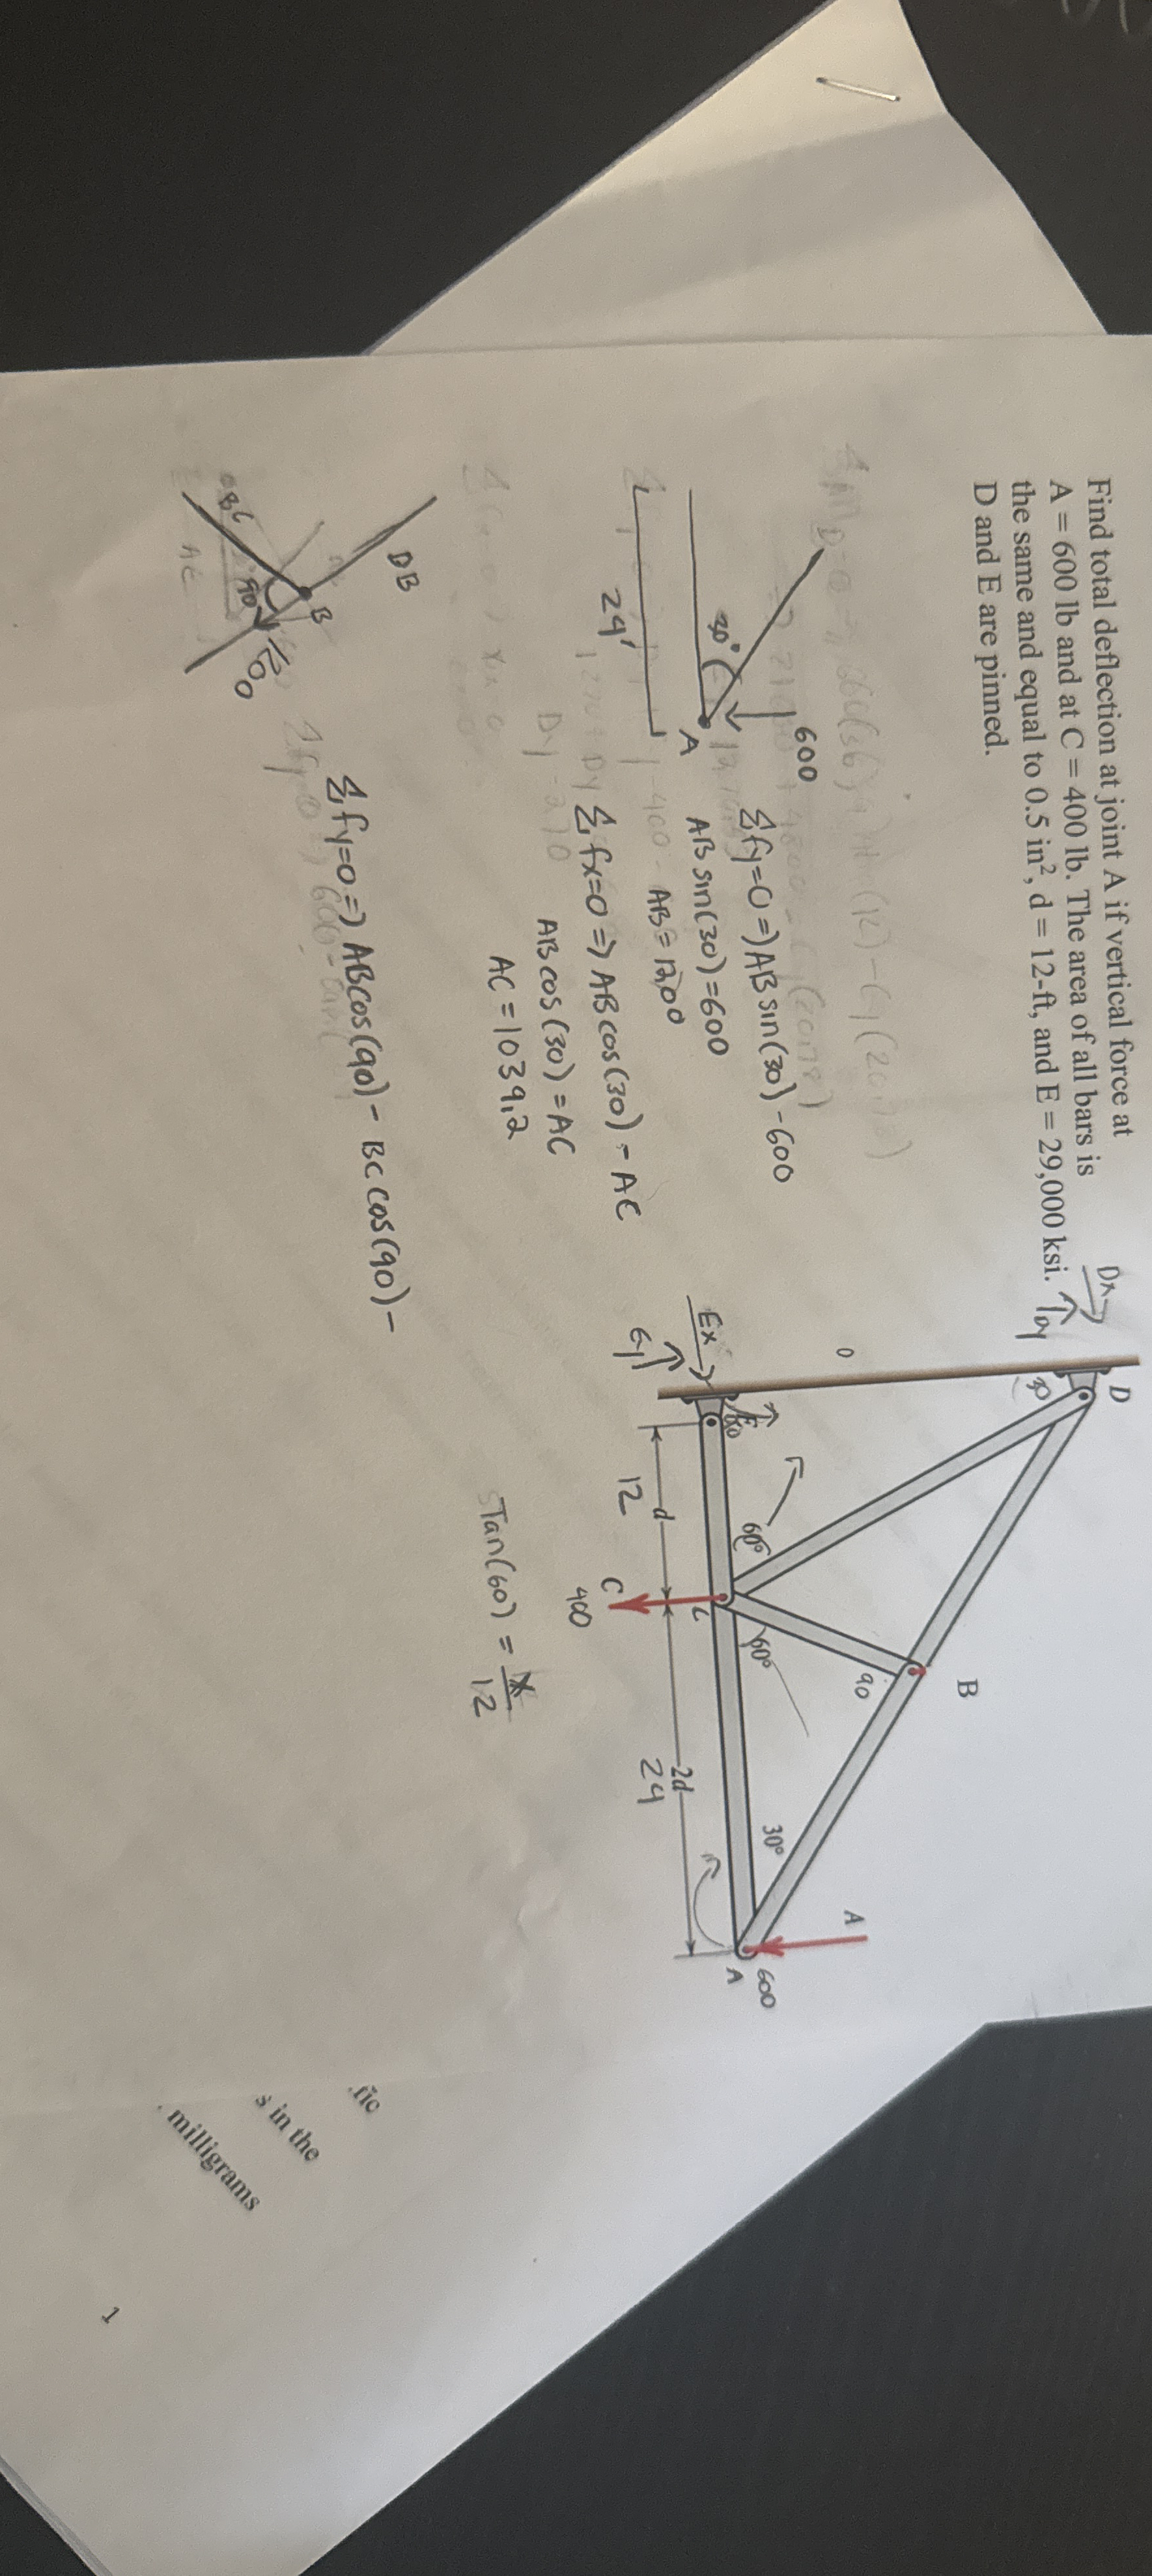 Find total deflection at joint A if vertical force at
A = 600 lb and at C = 400 lb. The area of all bars is
the same and equal to 0.5 in², d = 12-ft, and E = 29,000 ksi.
D and E are pinned.
Dx
Dy
D
30
B
90
0
Ex
Ey
60°
60°
30°
A
600
A
C
400
d
12
2d
24
Tan(60) = x/12
600
30°
A
24'
Σfy=0=) AB sin(30) - 600
AB sin(30) = 600
AB = 1200
Σfx=0=) AB cos(30) - AC
AB cos(30) = AC
AC = 1039.2
DB
B
BC
90
1200
Σfy=0=) AB cos(90) - BC cos(90) -
s in the
milligrams
1